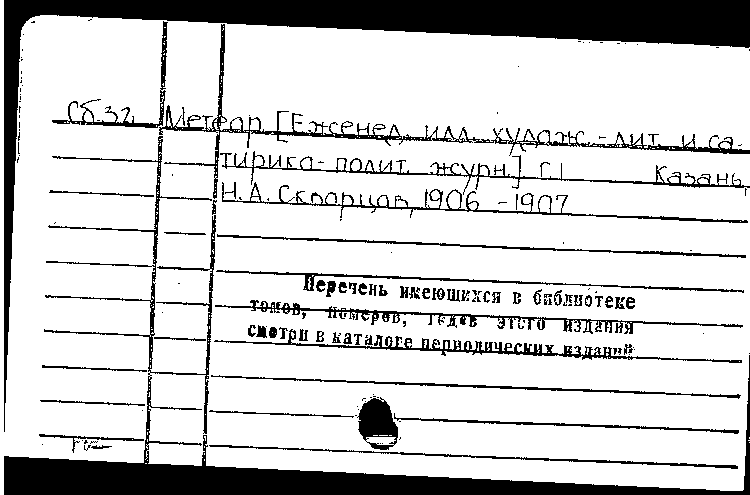 Сб.зг. Метеор [Еженед. илл. худаж.-лит. и са-
тирико-полит. журн.] Г.1 Казань,
Н.А. Скворцов, 1906 -1907
Перечень имеющихся в библиотеке
томов, номеров, годов этого издания
смотри в каталоге периодических изданий